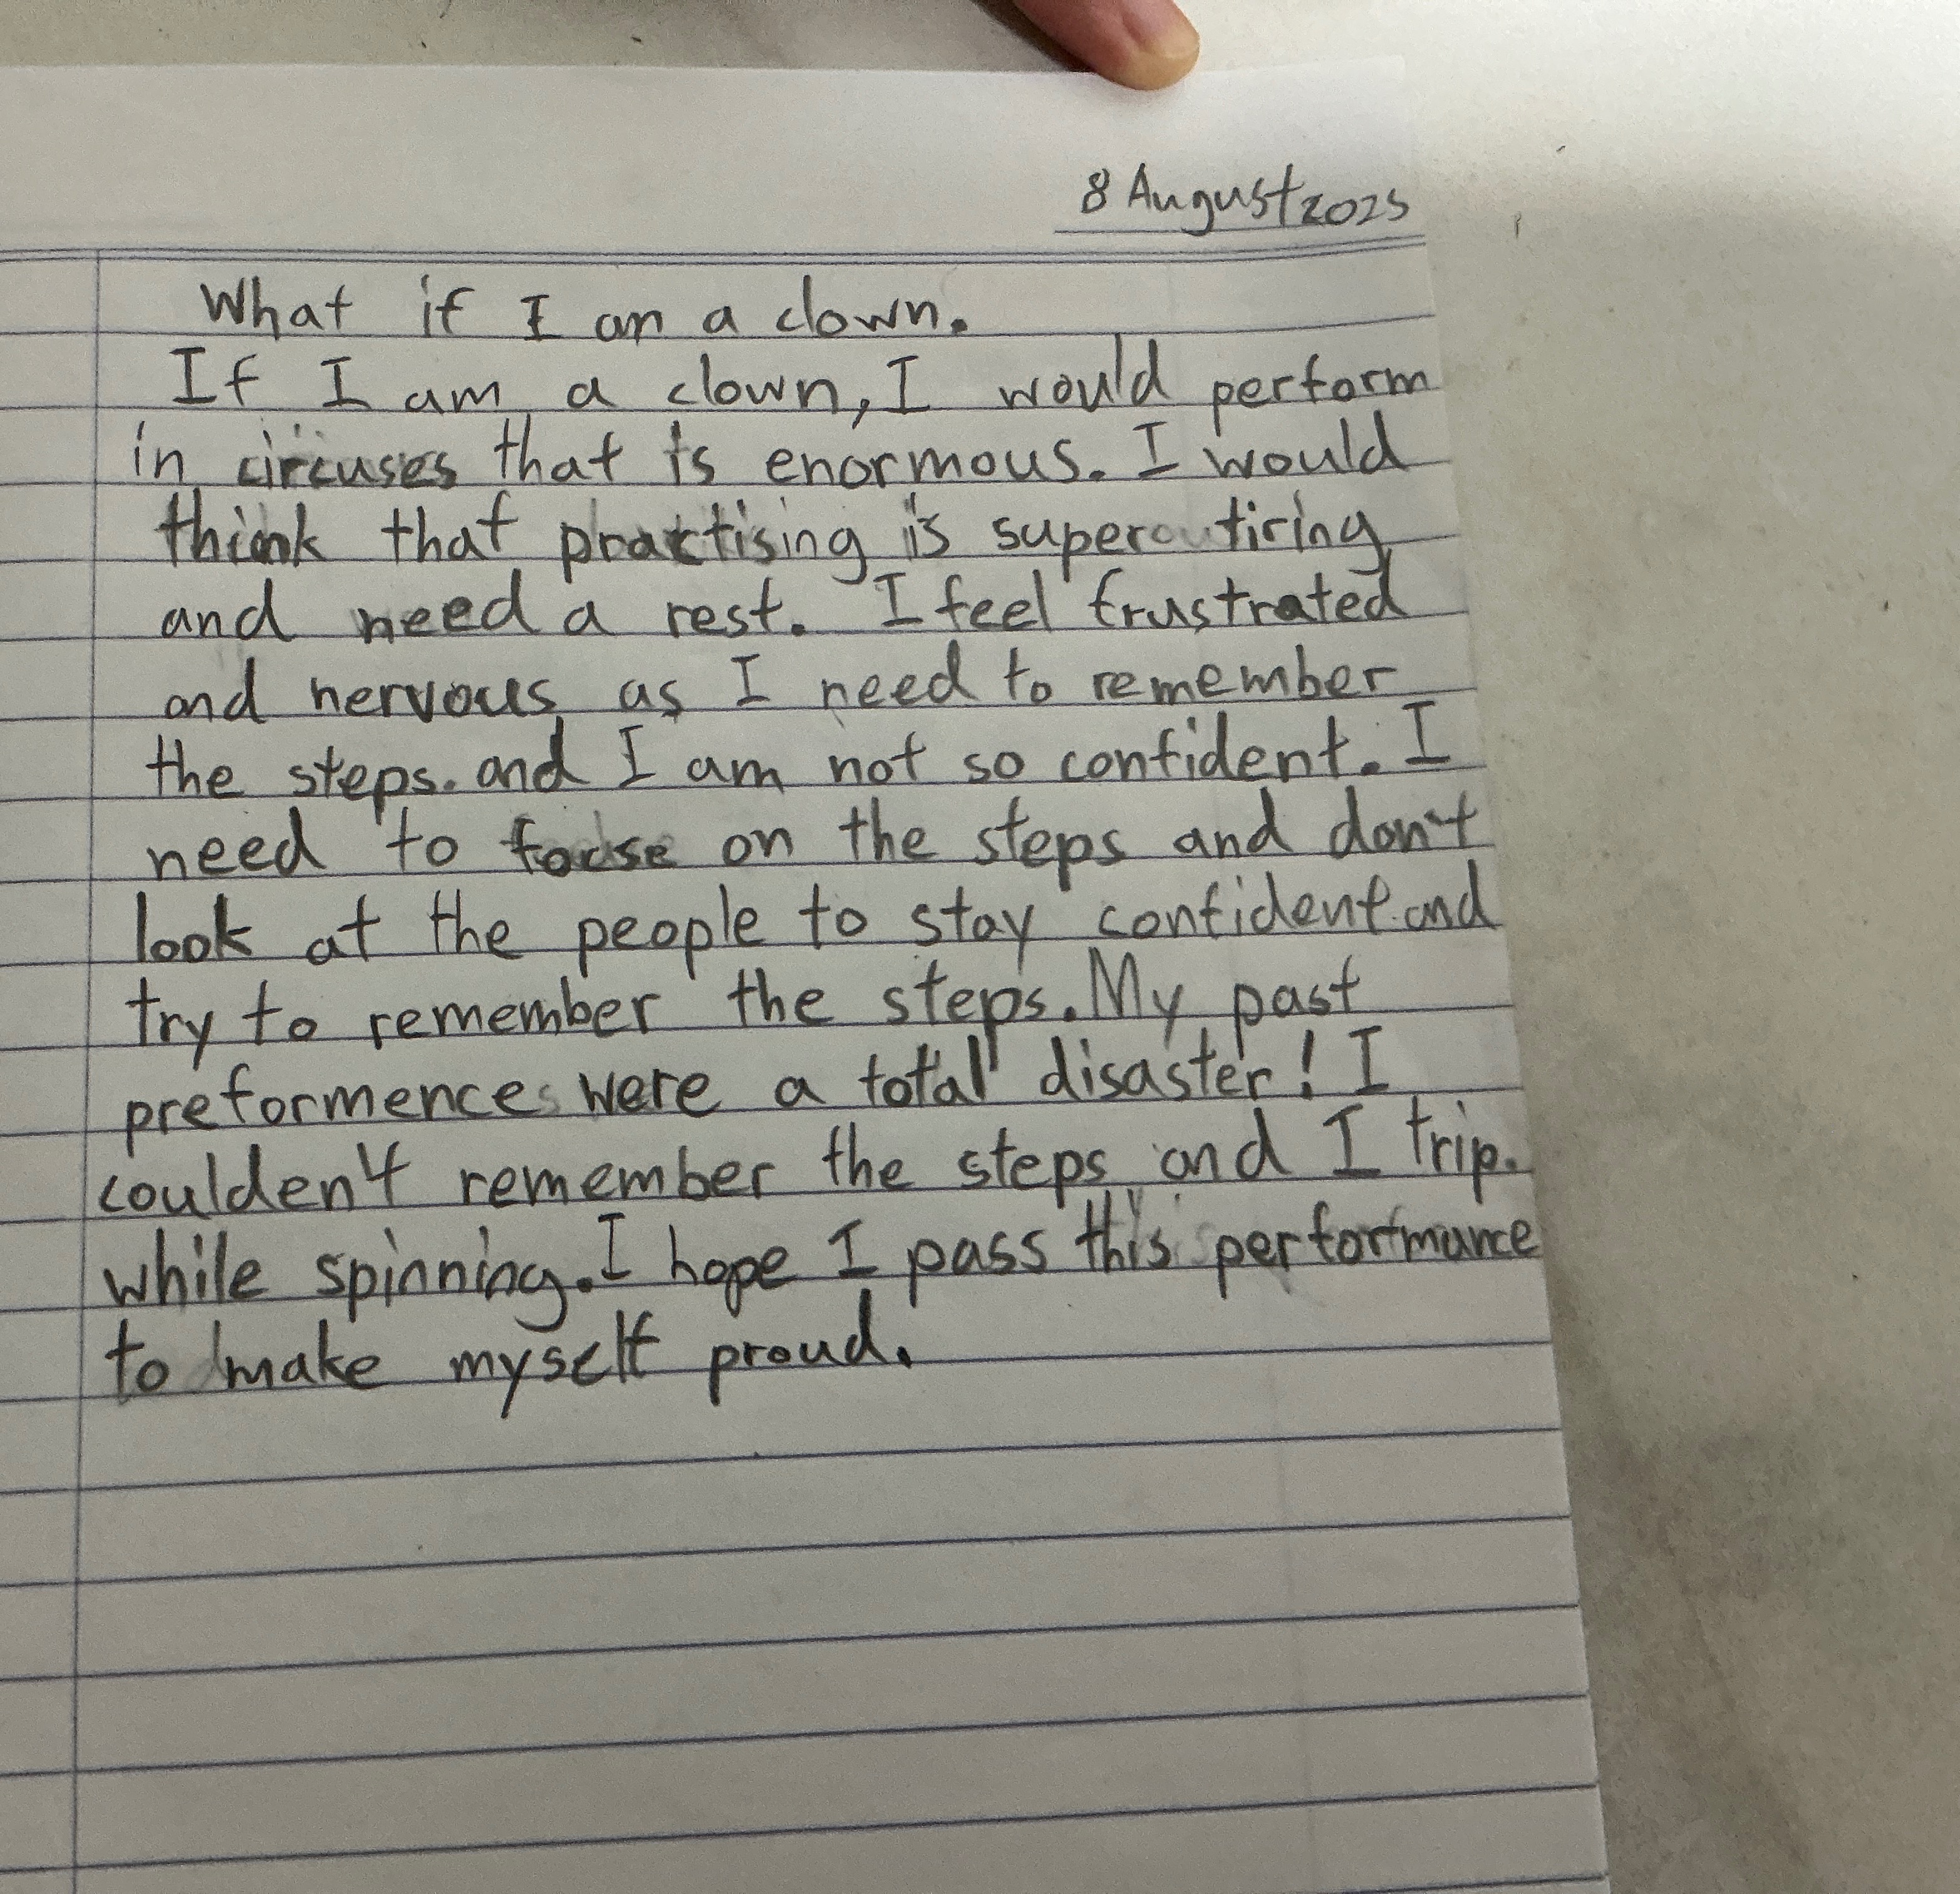 8 August 2025
What if I am a clown.
If I am a clown, I would perform
in circuses that is enormous. I would
think that practising is super tiring
and need a rest. I feel frustrated
and nervous as I need to remember
the steps. and I am not so confident. I
need to focuse on the steps and don't
look at the people to stay confident and
try to remember the steps. My past
preformences were a total disaster! I
coulden't remember the steps and I trip.
while spinning. I hope I pass this performance
to make myself proud.